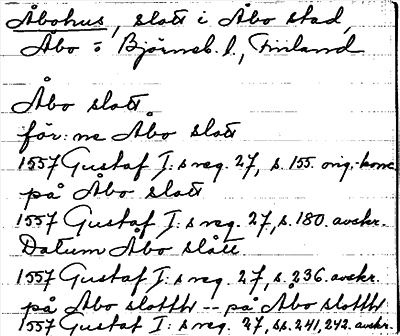 Åbohus, slott i Åbo stad,
Åbo o Björneb. l., Finland
Åbo slott
för: ne Åbo slott
1557 Gustaf I: s reg. 27, s. 155. orig.-konc.
på Åbo slott
1557 Gustaf I: s reg. 27, s. 180. avskr.
Datum Åbo slått.
1557 Gustaf I: s reg. 27, s. 236. avskr.
på Åbo slotth -- på Åbo slotth
1557 Gustaf I: s reg. 27, ss. 241, 242. avskr.